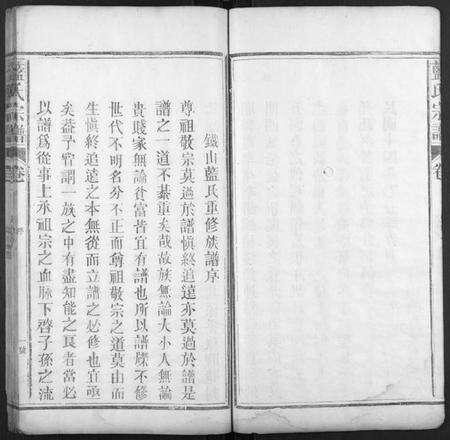 藍氏宗譜
卷
鐵山藍氏重修族譜序
尊祖敬宗莫過於譜愼終追遠亦莫過於譜是
譜之一道不綦重矣哉故族無論大小人無論
貴賤家無論貧富皆宜有譜也所以譜牒不修
世代不明名分不正而尊祖敬宗之道莫由而
生愼終追遠之本無從而立譜之必修也宜亟
矣蓋予嘗謂一族之中有盡知能之良者當必
以譜爲從事上承祖宗之血脉下啓子孫之流
藍氏宗譜
卷
一